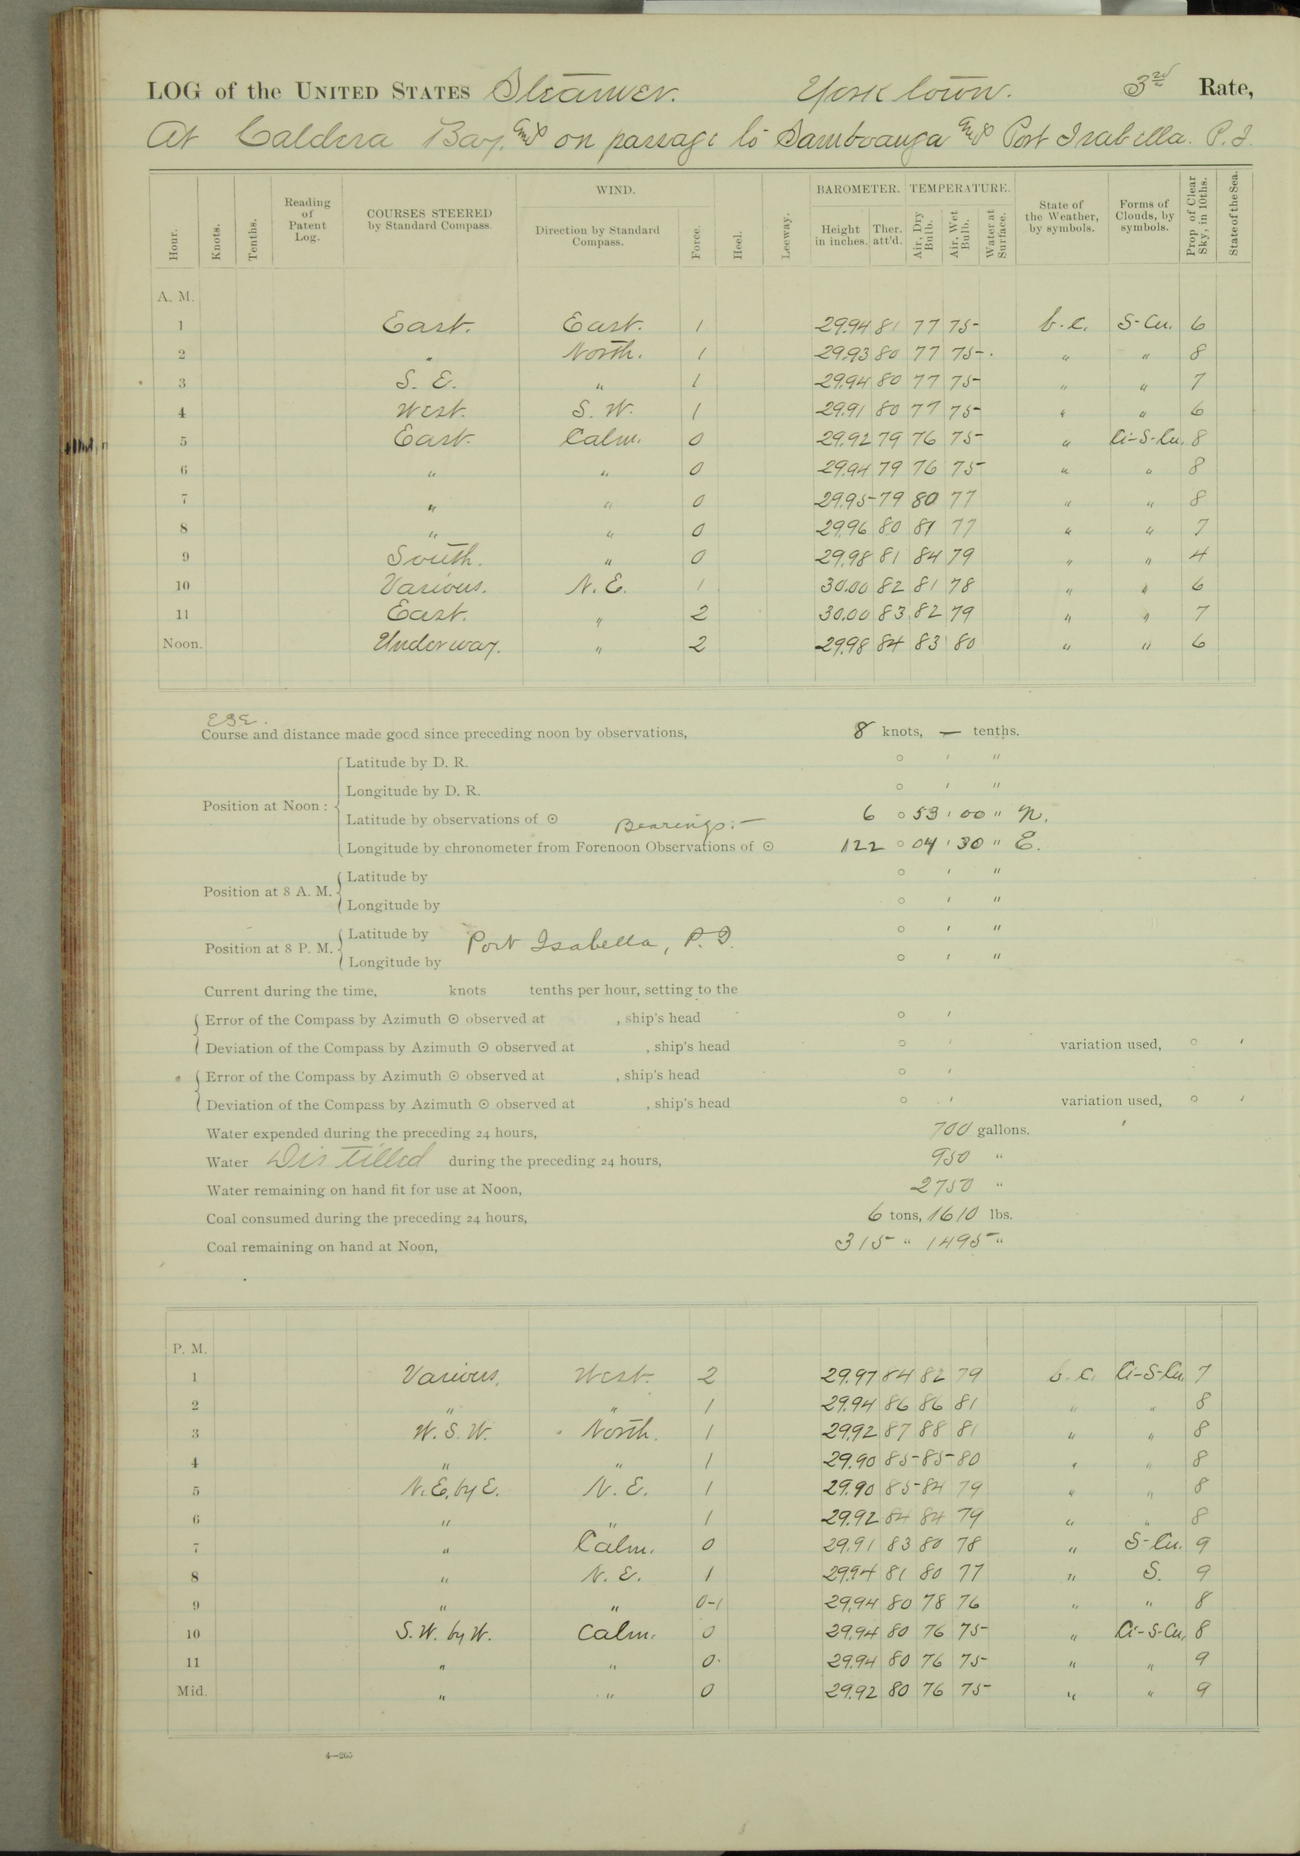 LOG of the UNITED STATES Steamer. Yorktown. 3rd Rate,
At Caldera Bay, and on passage to Samboanga and Port Isabella. P.I.
Hour. Knots. Tenths. Reading of Patent Log. COURSES STEERED by Standard Compass. WIND. Direction by Standard Compass. Force. Heel. Leeway. BAROMETER. Height in inches. Ther. att'd. TEMPERATURE. Air, Dry Bulb. Air, Wet Bulb. Water at Surface. State of the Weather, by symbols. Forms of Clouds, by symbols. Prop. of Clear Sky, in 10ths. State of the Sea.
A. M.
1 East. East. 1 29.94 81 77 75 b.c. S-Cu. 6
2 " North. 1 29.93 80 77 75 " " 8
3 S. E. " 1 29.94 80 77 75 " " 7
4 West. S. W. 1 29.91 80 77 75 " " 6
5 East. Calm. 0 29.92 79 76 75 " Ci-S-Cu. 8
6 " " 0 29.94 79 76 75 " " 8
7 " " 0 29.95 79 80 77 " " 8
8 " " 0 29.96 80 81 77 " " 7
9 South. " 0 29.98 81 84 79 " " 4
10 Various. N. E. 1 30.00 82 81 78 " " 6
11 East. " 2 30.00 83 82 79 " " 7
Noon. Underway. " 2 29.98 84 83 80 " " 6
ESE.
Course and distance made good since preceding noon by observations, 8 knots, — tenths.
Latitude by D. R. ° ' "
Longitude by D. R. ° ' "
Position at Noon:
Latitude by observations of ☉ Bearings:— 6 ° 53 ' 00 " N.
Longitude by chronometer from Forenoon Observations of ☉ 122 ° 04 ' 30 " E.
Position at 8 A. M. Latitude by ° ' "
Longitude by ° ' "
Position at 8 P. M. Latitude by Port Isabella, P. I. ° ' "
Longitude by ° ' "
Current during the time, knots tenths per hour, setting to the
Error of the Compass by Azimuth ☉ observed at , ship's head ° '
Deviation of the Compass by Azimuth ☉ observed at , ship's head ° ' variation used, ° '
Error of the Compass by Azimuth ☉ observed at , ship's head ° '
Deviation of the Compass by Azimuth ☉ observed at , ship's head ° ' variation used, ° '
Water expended during the preceding 24 hours, 700 gallons.
Water Distilled during the preceding 24 hours, 950 "
Water remaining on hand fit for use at Noon, 2750 "
Coal consumed during the preceding 24 hours, 6 tons, 1610 lbs.
Coal remaining on hand at Noon, 315 " 1495 "
P. M.
1 Various. West. 2 29.97 84 82 79 b.c. Ci-S-Cu. 7
2 " " 1 29.94 86 86 81 " " 8
3 W. S. W. North. 1 29.92 87 88 81 " " 8
4 " " 1 29.90 85 85 80 " " 8
5 N. E. by E. N. E. 1 29.90 85 84 79 " " 8
6 " " 1 29.92 84 84 79 " " 8
7 " Calm. 0 29.91 83 80 78 " S-Cu. 9
8 " N. E. 1 29.94 81 80 77 " S. 9
9 " " 0-1 29.94 80 78 76 " " 8
10 S. W. by W. Calm. 0 29.94 80 76 75 " Ci-S-Cu. 8
11 " " 0 29.94 80 76 75 " " 9
Mid. " " 0 29.92 80 76 75 " " 9
4—265